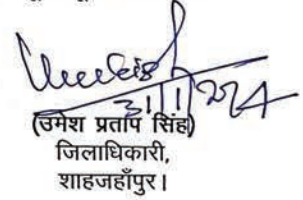 3111224
(उमेश प्रताप सिंह)
जिलाधिकारी,
शाहजहाँपुर।